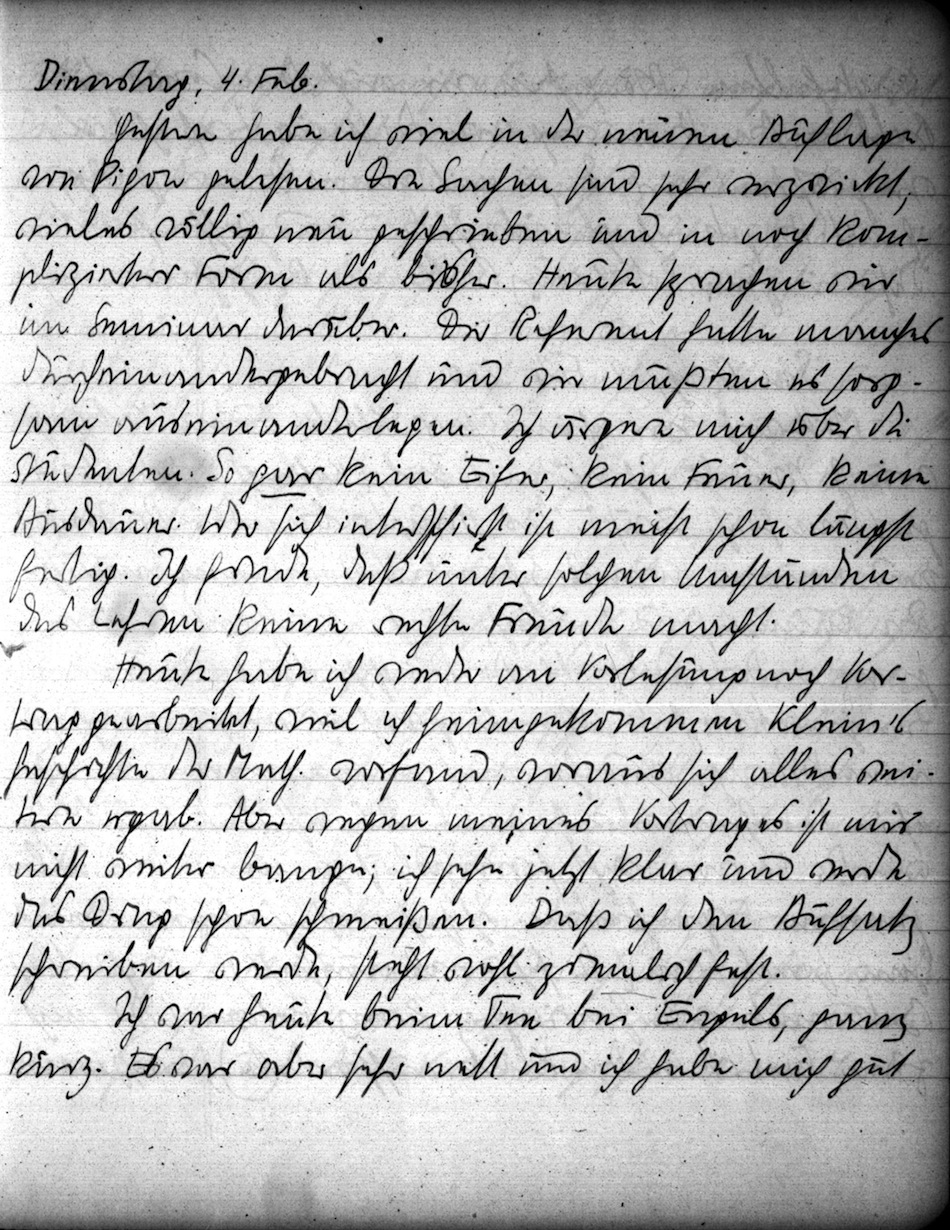 Dienstag, 4. Feb.
Gestern habe ich viel in der neuen Auflage
von Pigou gelesen. Die Sachen sind sehr verzwickt,
vieles völlig neu geschrieben und in noch kom-
plizierterer Form als bisher. Heute sprachen wir
im Seminar darüber. Die Referent hatte manches
durcheinandergebracht und wir mußten es sorg-
sam auseinanderlegen. Ich ärgere mich über die
Studenten. So gar kein Eifer, kein Feuer, keine
Ausdauer. Wer sich interessiert ist meist schon längst
fertig. Ich finde, daß unter solchen Umständen
das Lehren keine rechte Freude macht.
Heute habe ich weder an Vorlesung noch Vor-
trag gearbeitet, weil ich heimgekommen Klein's
Geschichte der Math. vorfand, woraus sich alles wei-
tere ergab. Aber wegen meines Vortrages ist mir
nicht weiter bange; ich sehe jetzt klar und werde
das Ding schon schmeißen. Daß ich den Aufsatz
schreiben werde, steht wohl ziemlich fest.
Ich war heute beim Tee bei Engels, ganz
kurz. Es war aber sehr nett und ich habe mich gut